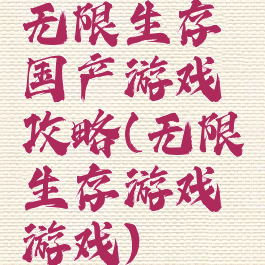 无限生存
国产游戏
攻略(无限
生存游戏
游戏)